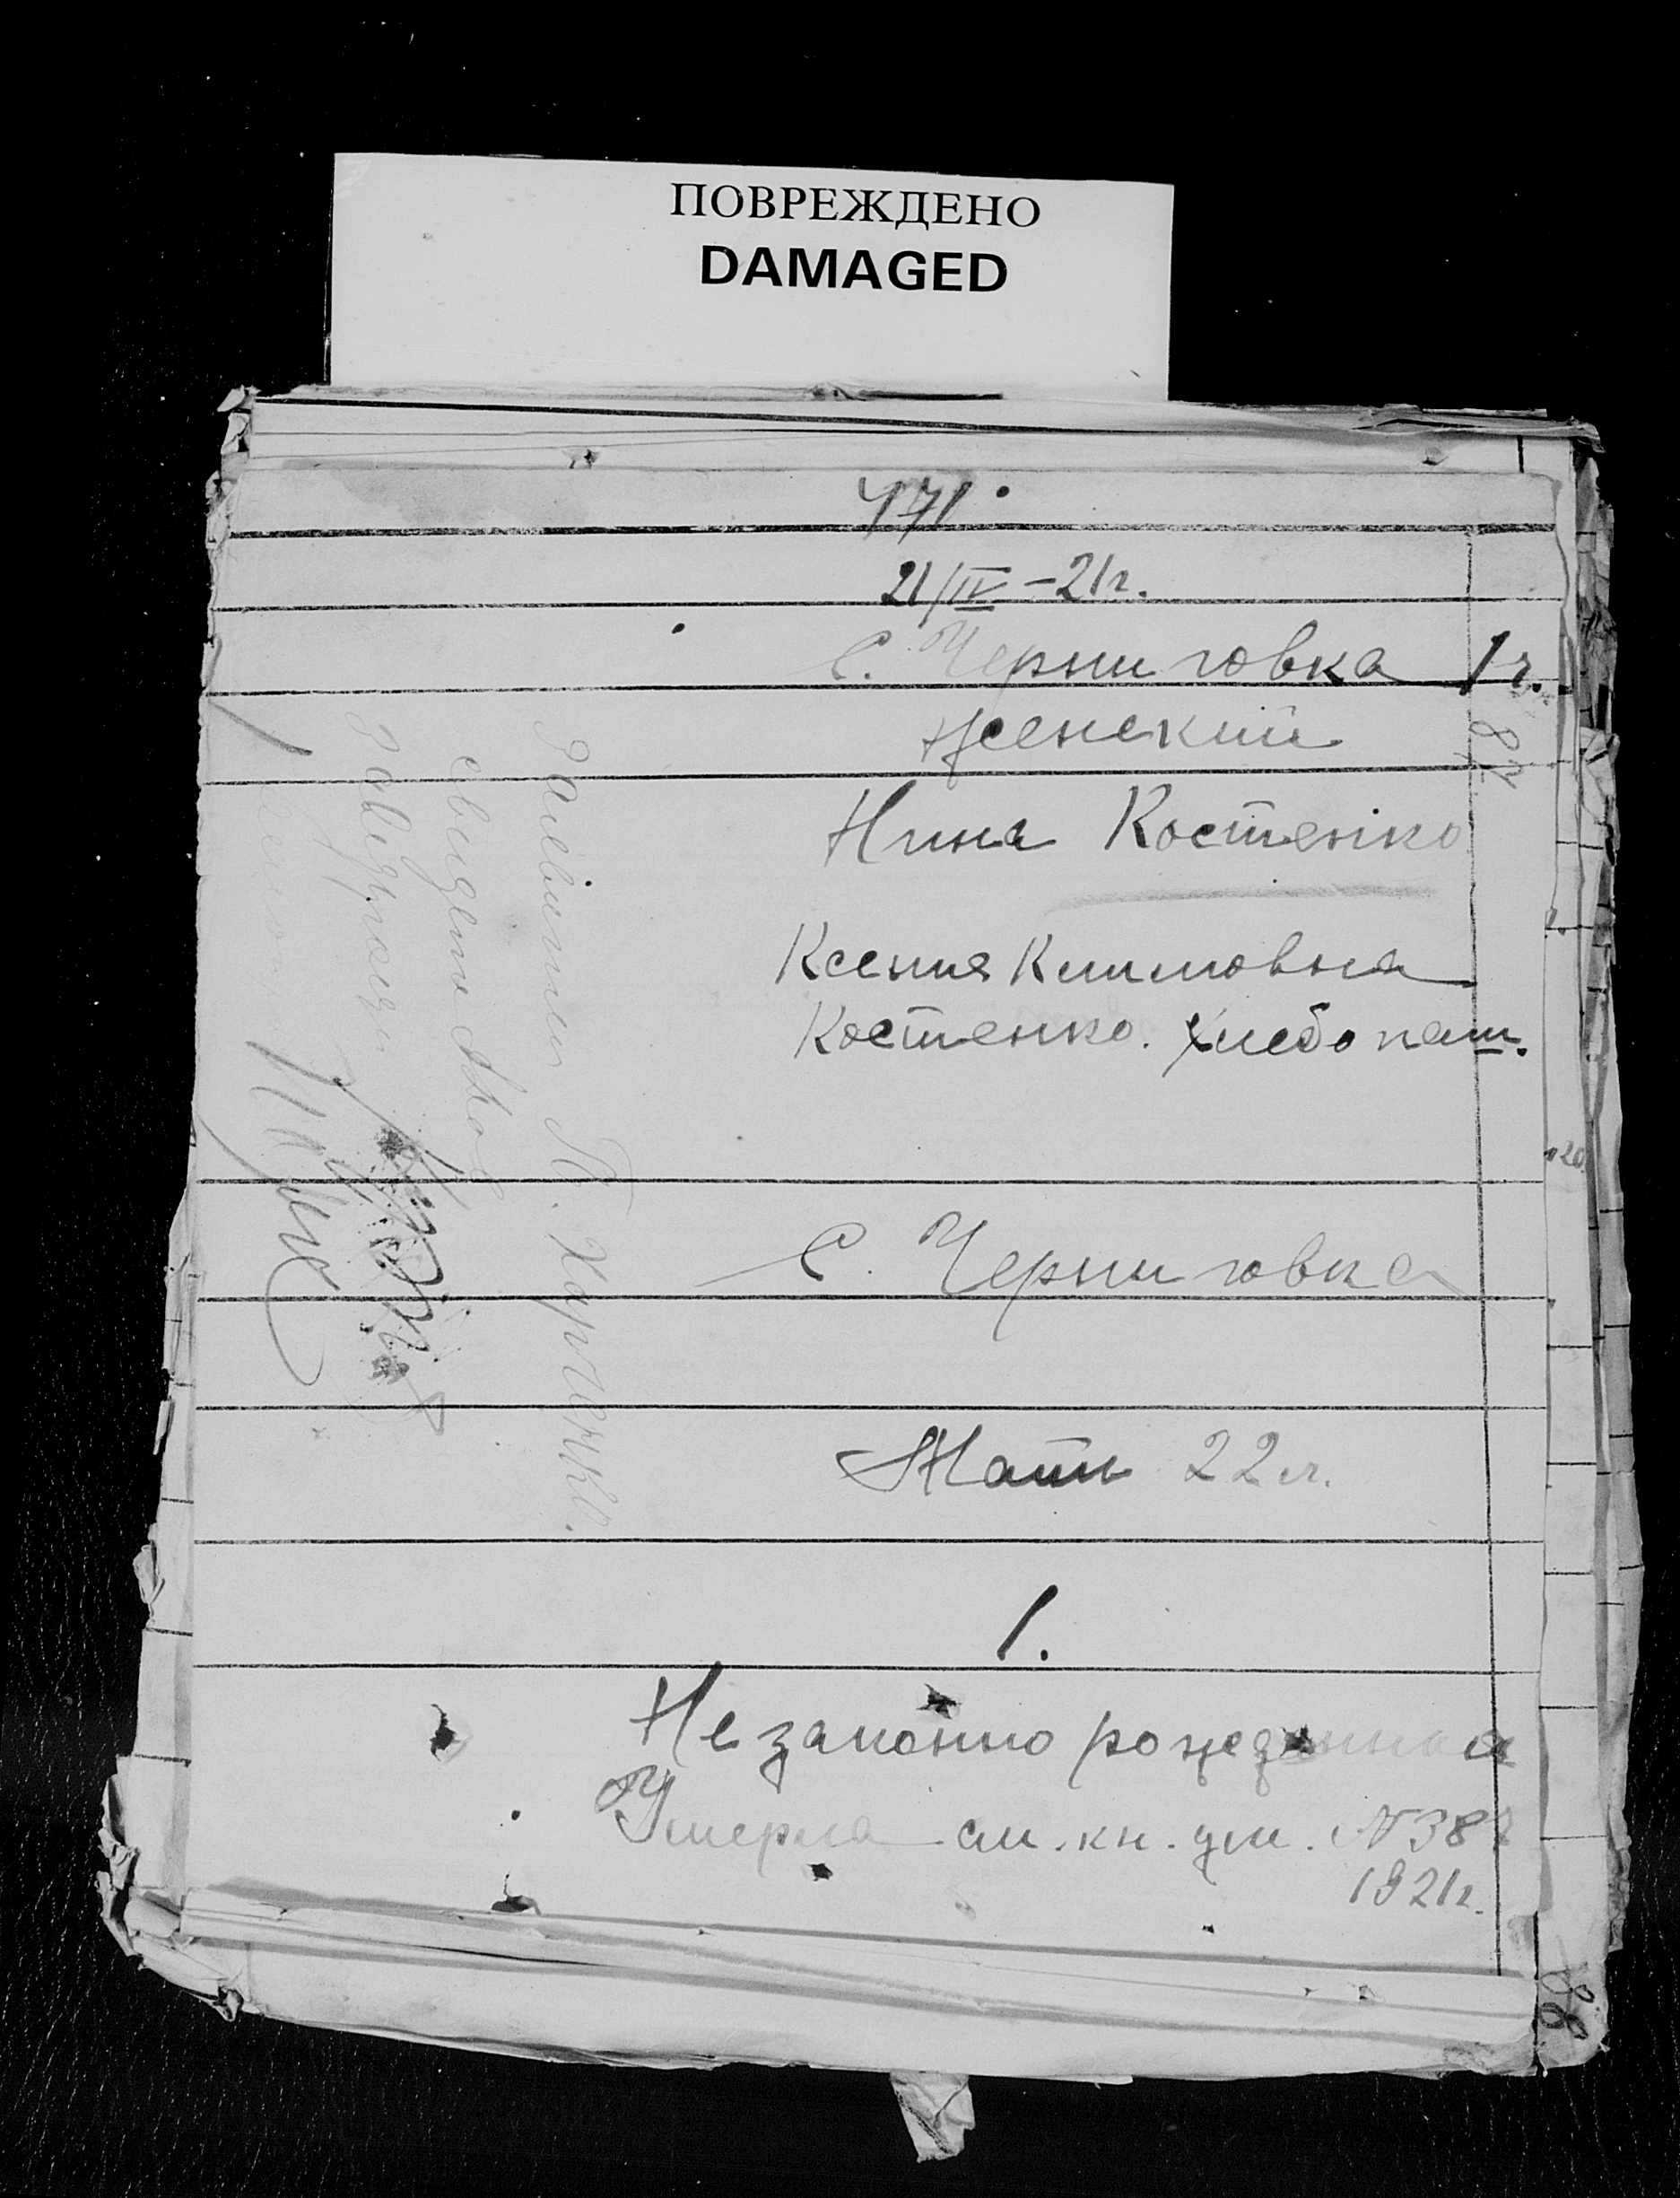 ПОВРЕЖДЕНО
DAMAGED
471
21/IV – 21г.
С. Черниговка 1г.
женский
Нина Костенко
Ксения Климовна
Костенко. хлебопаш.
С. Черниговка
Мать 22 л.
1.
Незаконно рожденная
Умерла см. кн. ум. №387
1921г.
Х. Харченко.
87
88